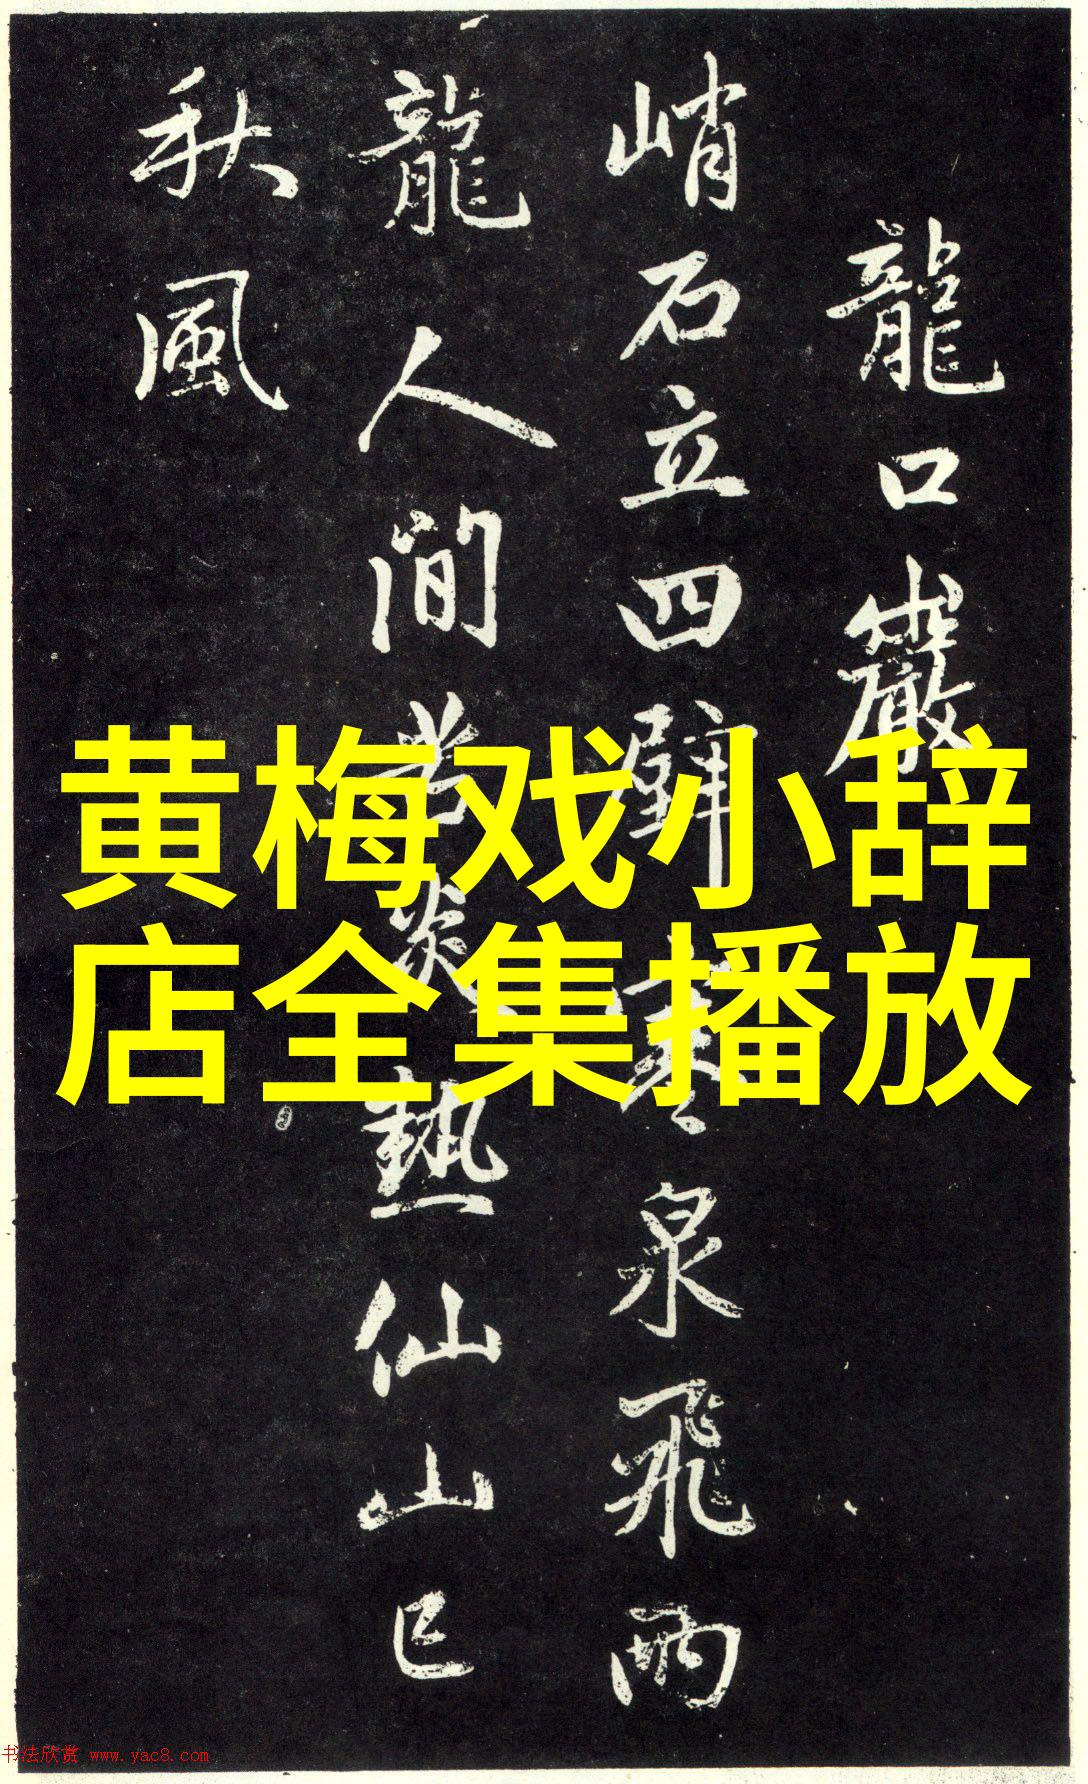 龍口巖
峭石立四壁寒泉飛兩
龍人間苦炎熱仙山已
秋風
黄梅戏小辞
店全集播放
书法欣赏 www.yac8.com